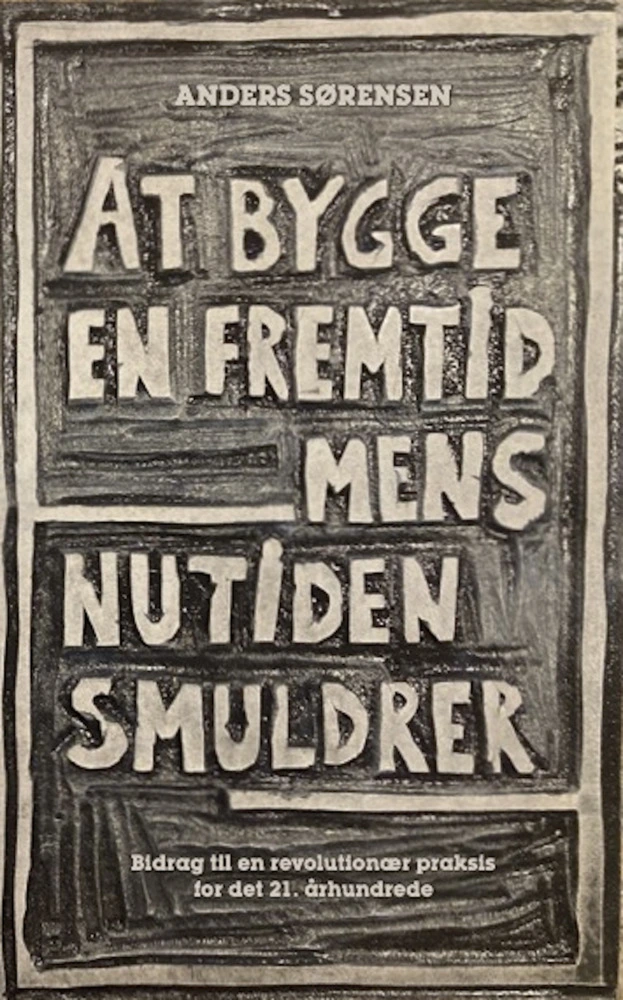 ANDERS SØRENSEN
AT BYGGE
EN FREMTID
MENS
NUTIDEN
SMULDRER
Bidrag til en revolutionær praksis
for det 21. århundrede